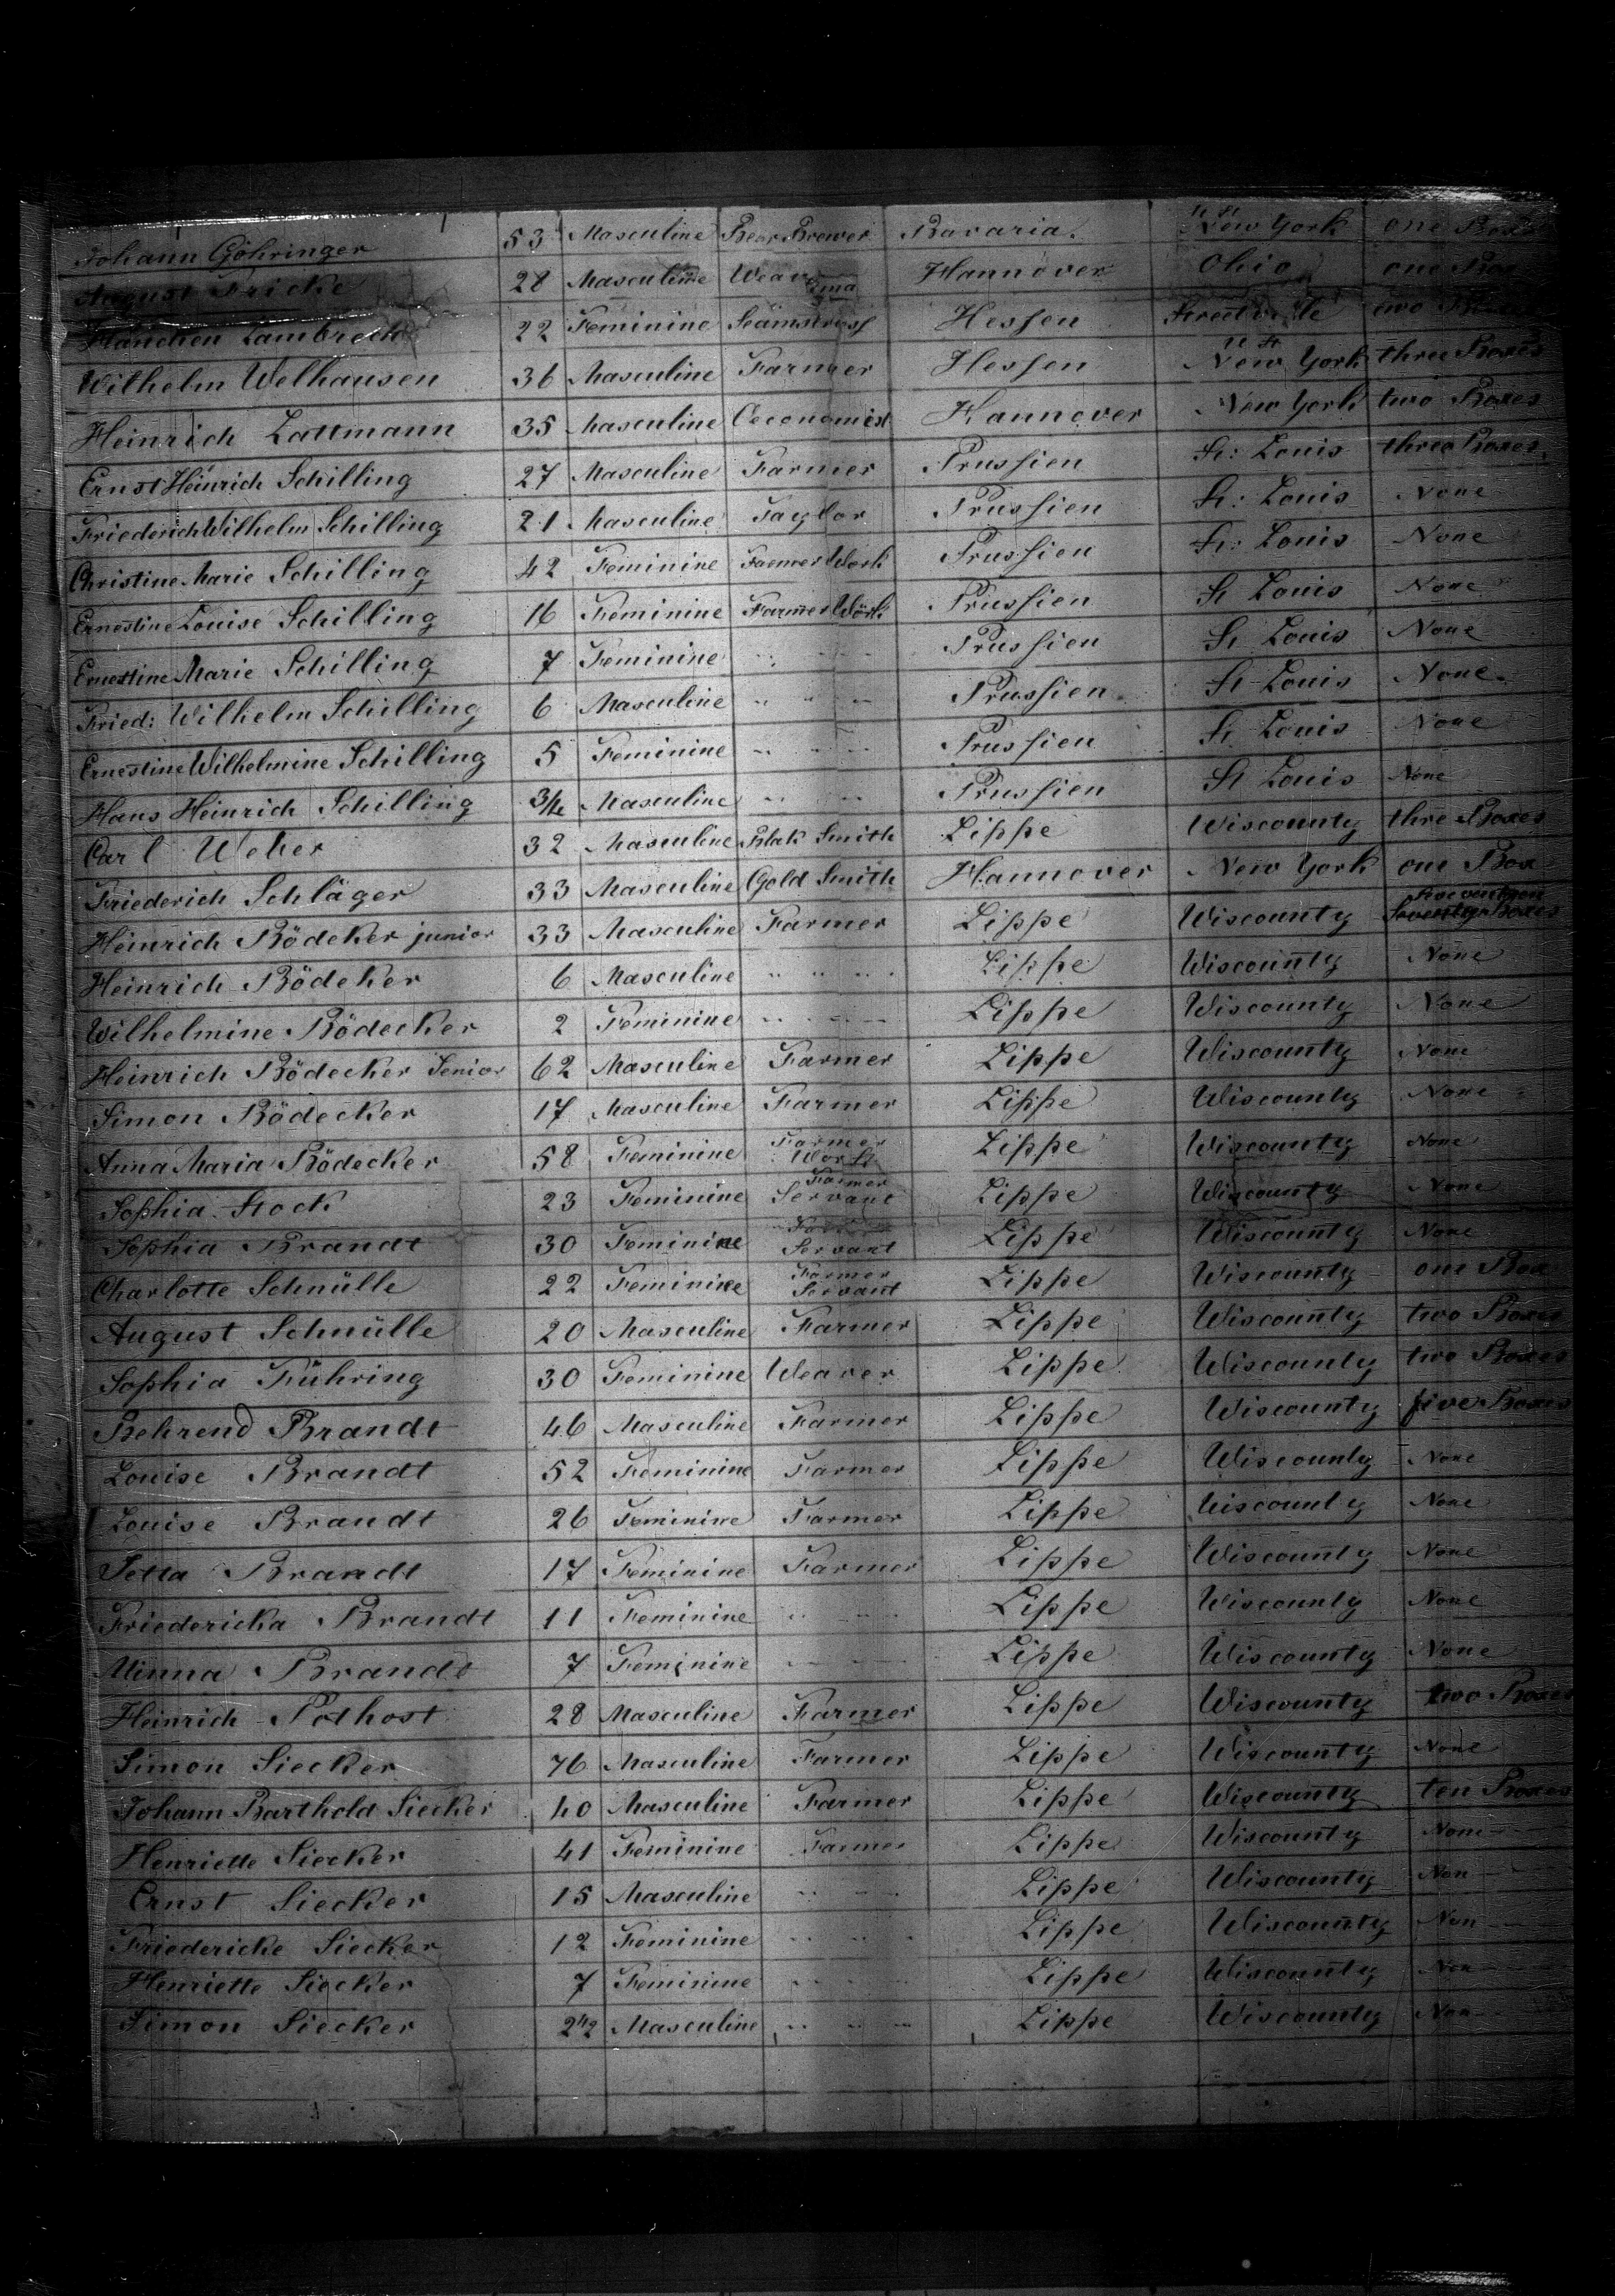 Johann Göhringer 53 Masculine Bear Brewer Bavaria. New York one Box
August Fricke 28 Masculine Weaver Hannover Ohio one Box
Hanchen Lambrecht 22 Feminine Hessen two
Wilhelm Welhausen 36 Masculine Farmer Hessen New York three Boxes
Heinrich Lattmann 35 Masculine Oeconomist Hannover New York two Boxes
Ernst Heinrich Schilling 27 Masculine Farmer Prussien St: Louis three Boxes.
Friederich Wilhelm Schilling 21 Masculine Taylor Prussien St: Louis None
Christine Marie Schilling 42 Feminine Faemer Work Prussien St: Louis None
Ernestine Louise Schilling 16 Feminine Farmer Work Prussien St Louis None
Ernestine Marie Schilling 7 Feminine Prussien St Louis None
Fried: Wilhelm Schilling 6 Masculine Prussien St Louis None
Ernestine Wilhelmine Schilling 5 Feminine Prussien St Louis None
Hans Heinrich Schilling Masculine Prussien St Louis None
Carl Weber 32 Masculine Blak Smith Lippe Wiscounty thre Boxes
Friederich Schläger 33 Masculine Gold Smith Hannover New York one Box
Heinrich Bödeker junior 33 Masculine Farmer Lippe Wiscounty Boxes
Heinrich Bödeker 6 Masculine Lippe Wiscounty None
Wilhelmine Bödecker 2 Feminine Lippe Wiscounty None
Heinrich Bödecker Senior 62 Masculine Farmer Lippe Wiscounty None
Simon Bödecker 17 Masculine Farmer Lippe Wiscounty None
Anna Maria Bödecker 58 Feminine Farmer Work Lippe Wiscounty None
Sophia Stock 23 Feminine Farmer Servant Lippe Wiscounty None
Sophia Brandt 30 Feminine Servant Lippe Wiscounty None
Charlotte Schnülle 22 Feminine Farmer Servant Lippe Wiscounty one Box
August Schnülle 20 Masculine Farmer Lippe Wiscounty two Boxes
Sophia Führing 30 Feminine Weaver Lippe Wiscounty two Boxes
Behrend Brandt 46 Masculine Farmer Lippe Wiscounty five Boxes
Louise Brandt 52 Feminine Farmer Lippe Wiscounty None
Louise Brandt 26 Feminine Farmer Lippe Wiscounty None
Jetta Brandt 17 Feminine Farmer Lippe Wiscounty None
Friedericka Brandt 11 Feminine Lippe Wiscounty None
Minna Brandt 7 Feminine Lippe Wiscounty None
Heinrich Pothost 28 Masculine Farmer Lippe Wiscounty two Boxes
Simon Siecker 76 Masculine Farmer Lippe Wiscounty None
Johann Barthold Siecker 40 Masculine Farmer Lippe Wiscounty ten Boxes
Henriette Siecker 41 Feminine Farmer Lippe Wiscounty None
Ernst Siecker 15 Masculine Lippe Wiscounty Non
Friedericke Siecker 12 Feminine Lippe Wiscounty Non
Henriette Siecker 7 Feminine Lippe Wiscounty Non
Simon Siecker Masculine Lippe Wiscounty Non